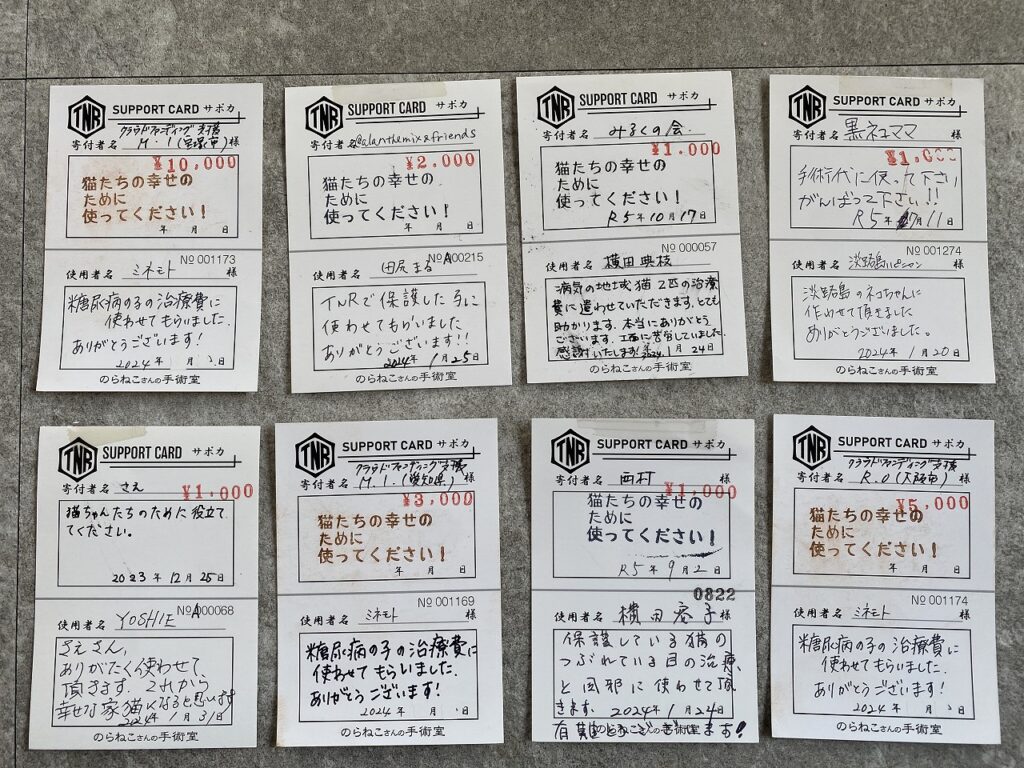 TNR
SUPPORT CARD サポカ
クラウドファンディング支援
寄付者名 M.I 様
¥10,000
猫たちの幸せの
ために
使ってください！
年 月 日
No 001173
使用者名 ミネモト 様
糖尿病の子の治療費に
使わせてもらいました.
ありがとうございます！
2024年 月 日
のらねこさんの手術室
TNR
SUPPORT CARD サポカ
寄付者名 @alanthemix&friends
¥2,000
猫たちの幸せの
ために
使ってください！
年 月 日
No A00215
使用者名 田尻まる 様
TNRで保護した子に
使わせてもらいました
ありがとうございます!!
2024年 1月25日
のらねこさんの手術室
TNR
SUPPORT CARD サポカ
寄付者名 みるくの会. 様
¥1,000
猫たちの幸せの
ために
使ってください！
R5年10月17日
No 000057
使用者名 横田典枝 様
病気の地域猫2匹の治療
費に遣わせていただきます。とても
助かります。本当にありがとう
ございます。工面に苦労していました。
感謝いたします!2024年1月24日
のらねこさんの手術室
TNR
SUPPORT CARD サポカ
寄付者名 黒ネコママ 様
¥1,000
手術代に使って下さい
がんばって下さい!!
R5年 7月11日
No 001274
使用者名 淡路島 様
淡路島のネコちゃんに
使わせて頂きました
ありがとうございました。
2024年 1月20日
のらねこさんの手術室
TNR
SUPPORT CARD サポカ
寄付者名 さえ
¥1,000
猫ちゃんたちのために役立て
てください。
2023年 12月25日
No A00068
使用者名 YOSHIE 様
さえさん,
ありがたく使わせて
頂きます. これから
幸せな家猫になると思います
2024年 1月31日
のらねこさんの手術室
TNR
SUPPORT CARD サポカ
クラウドファンディング支援
寄付者名 M.I.(愛知県) 様
¥3,000
猫たちの幸せの
ために
使ってください！
年 月 日
No 001169
使用者名 ミネモト 様
糖尿病の子の治療費に
使わせてもらいました.
ありがとうございます!
2024年 月 日
のらねこさんの手術室
TNR
SUPPORT CARD サポカ
寄付者名 西村 様
¥1,000
猫たちの幸せの
ために
使ってください！
R5年 9月2日
0822
使用者名 横田 子様
保護している猫の
つぶれている目の治療
と風邪に使わせて頂
きます. 2024年1月24日
有難うございます!
のらねこさんの手術室
TNR
SUPPORT CARD サポカ
クラウドファンディング支援
寄付者名 R.O(大阪市) 様
¥5,000
猫たちの幸せの
ために
使ってください！
年 月 日
No 001174
使用者名 ミネモト 様
糖尿病の子の治療費に
使わせてもらいました.
ありがとうございます!
2024年 月 日
のらねこさんの手術室